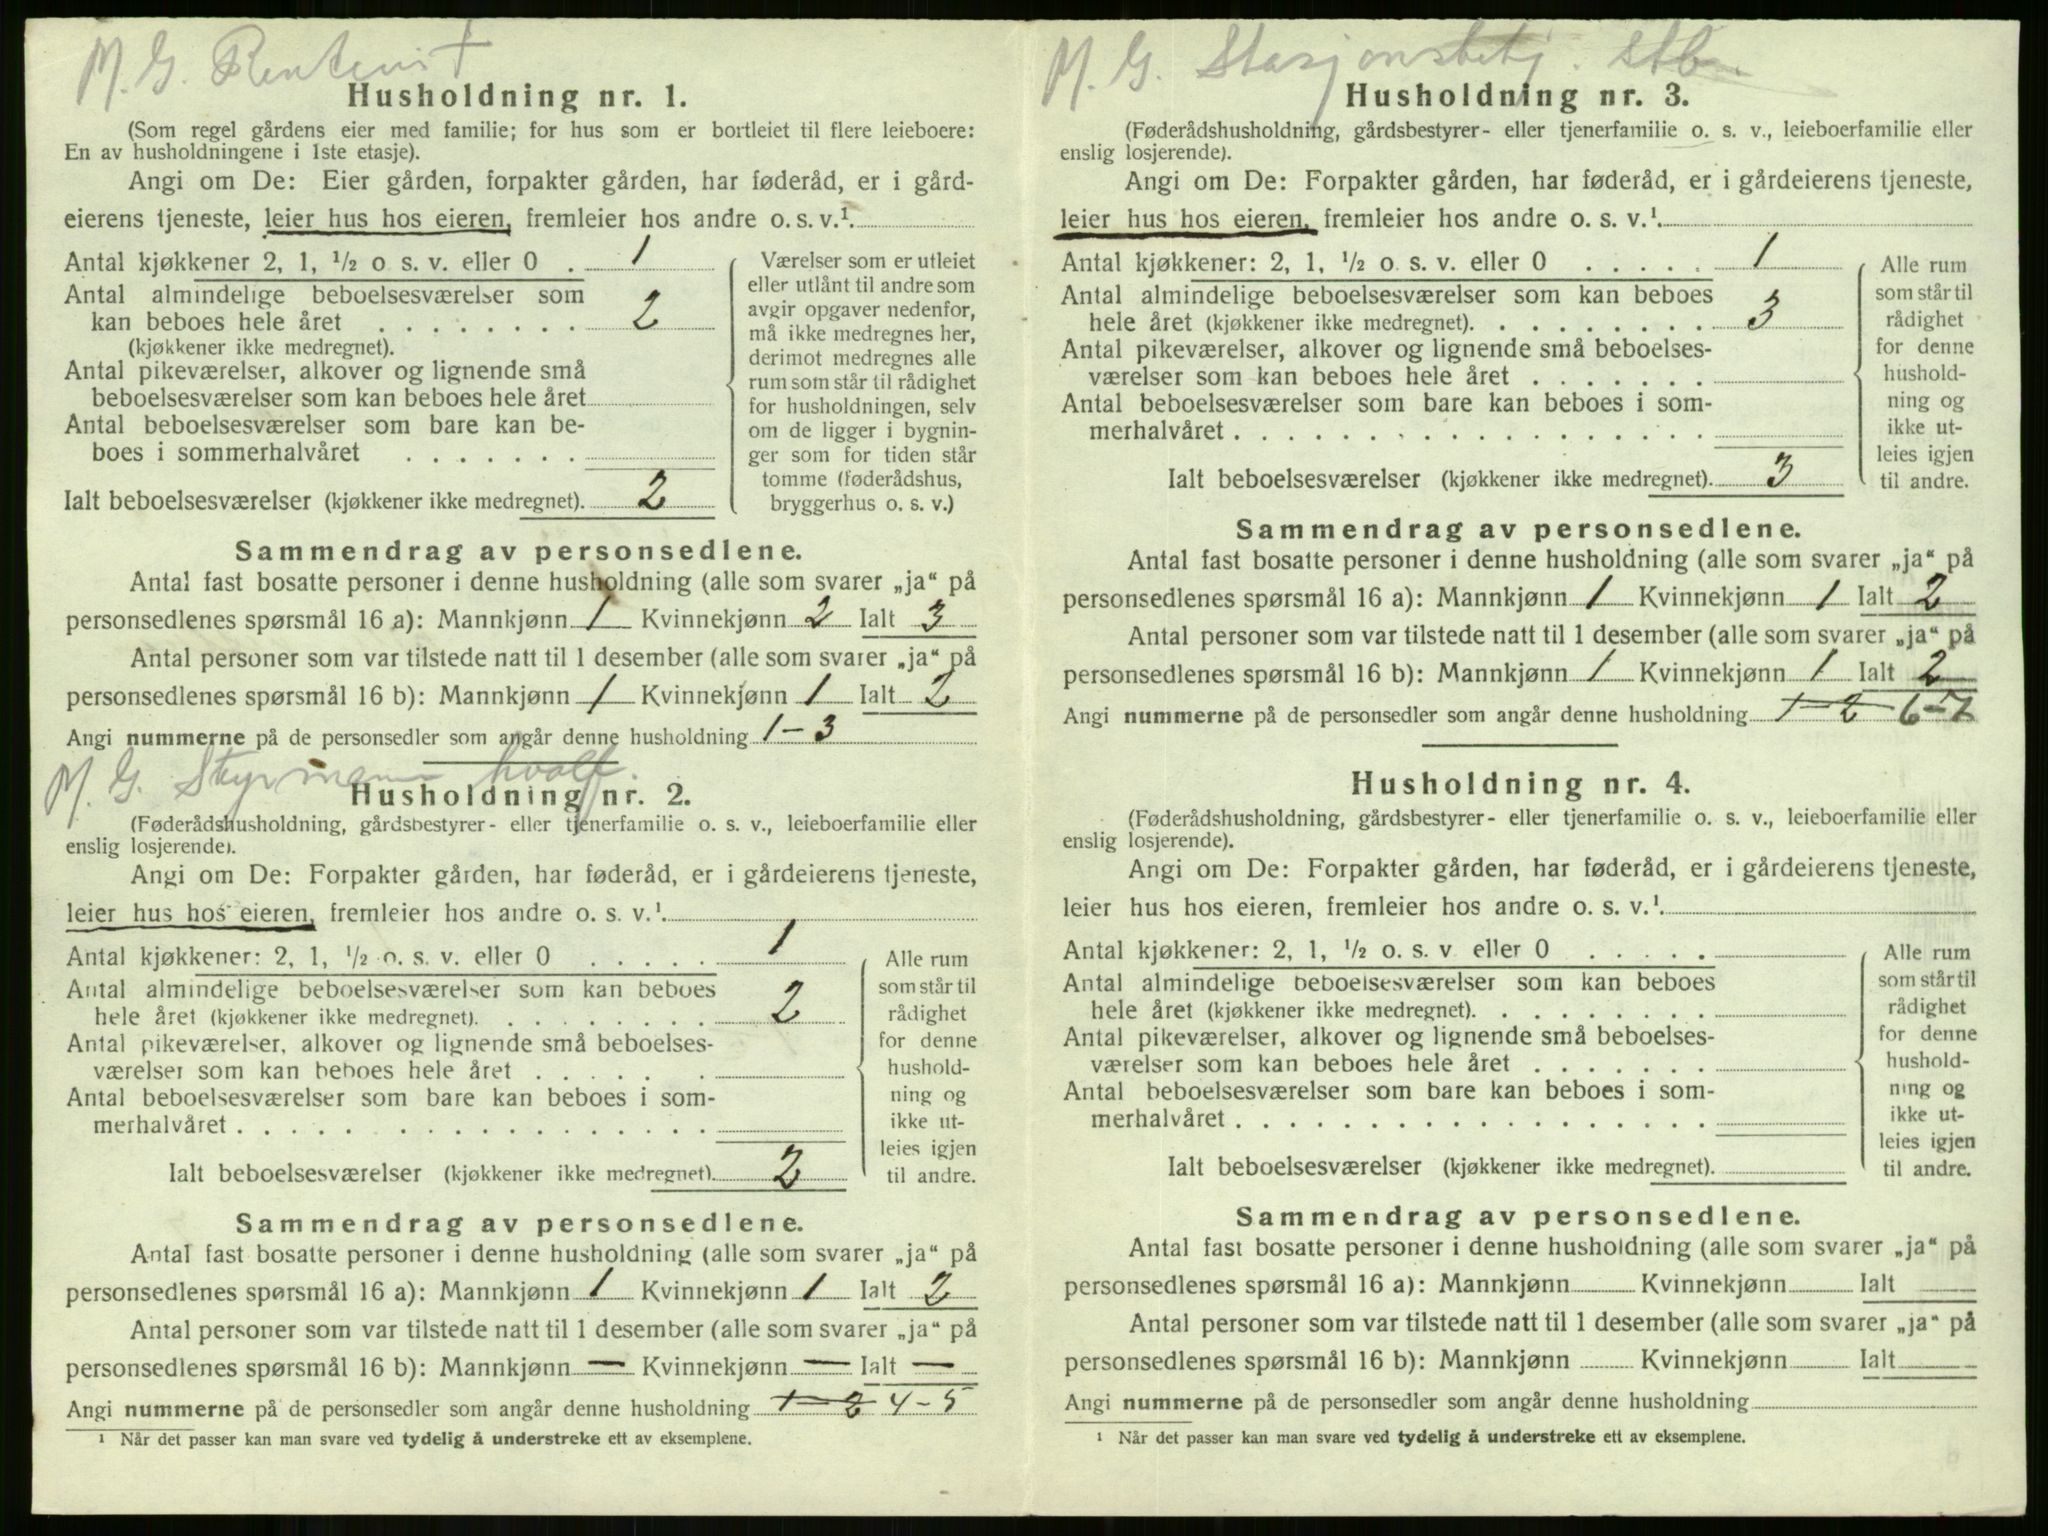 M. G. Rentenist
Husholdning nr. 1.
(Som regel gårdens eier med familie; for hus som er bortleiet til flere leieboere:
En av husholdningene i 1ste etasje).
Angi om De: Eier gården, forpakter gården, har føderåd, er i gård-
eierens tjeneste, leier hus hos eieren, fremleier hos andre o. s. v.¹.
Antal kjøkkener 2, 1, ½ o s. v. eller 0 . 1
Antal almindelige beboelsesværelser som
kan beboes hele året . . . . . . . . 2
(kjøkkener ikke medregnet).
Antal pikeværelser, alkover og lignende små
beboelsesværelser som kan beboes hele året
Antal beboelsesværelser som bare kan be-
boes i sommerhalvåret . . . . . . .
Ialt beboelsesværelser (kjøkkener ikke medregnet). 2
Værelser som er utleiet
eller utlånt til andre som
avgir opgaver nedenfor,
må ikke medregnes her,
derimot medregnes alle
rum som står til rådighet
for husholdningen, selv
om de ligger i bygnin-
ger som for tiden står
tomme (føderådshus,
bryggerhus o. s. v.)
Sammendrag av personsedlene.
Antal fast bosatte personer i denne husholdning (alle som svarer „ja“ på
personsedlenes spørsmål 16 a): Mannkjønn 1 Kvinnekjønn 2 Ialt 3
Antal personer som var tilstede natt til 1 desember (alle som svarer „ja“ på
personsedlenes spørsmål 16 b): Mannkjønn 1 Kvinnekjønn 1 Ialt 2
Angi nummerne på de personsedler som angår denne husholdning 1 - 3
M. G. Styrmann hvalf.
Husholdning nr. 2.
(Føderådshusholdning, gårdsbestyrer- eller tjenerfamilie o. s. v., leieboerfamilie eller
enslig losjerende).
Angi om De: Forpakter gården, har føderåd, er i gårdeierens tjeneste,
leier hus hos eieren, fremleier hos andre o. s. v.¹.
Antal kjøkkener: 2, 1, ½ o. s. v. eller 0 . . . . . 1
Antal almindelige beboelsesværelser som kan beboes
hele året (kjøkkener ikke medregnet). . . . . . . . . 2
Antal pikeværelser, alkover og lignende små beboelses-
værelser som kan beboes hele året . . . . . . .
Antal beboelsesværelser som bare kan beboes i som-
merhalvåret . . . . . . . . . . . . . . . . . .
Ialt beboelsesværelser (kjøkkener ikke medregnet). 2
Alle rum
som står til
rådighet
for denne
hushold-
ning og
ikke ut-
leies igjen
til andre.
Sammendrag av personsedlene.
Antal fast bosatte personer i denne husholdning (alle som svarer „ja“ på
personsedlenes spørsmål 16 a): Mannkjønn 1 Kvinnekjønn 1 Ialt 2
Antal personer som var tilstede natt til 1 desember (alle som svarer „ja“ på
personsedlenes spørsmål 16 b): Mannkjønn — Kvinnekjønn — Ialt —
Angi nummerne på de personsedler som angår denne husholdning 1 - 2 4 - 5
¹ Når det passer kan man svare ved tydelig å understreke ett av eksemplene.
M. G. Stasjonsbetj. Stb.
Husholdning nr. 3.
(Føderådshusholdning, gårdsbestyrer- eller tjenerfamilie o. s. v., leieboerfamilie eller
enslig losjerende).
Angi om De: Forpakter gården, har føderåd, er i gårdeierens tjeneste,
leier hus hos eieren, fremleier hos andre o. s. v.¹.
Antal kjøkkener: 2, 1, ½ o. s. v. eller 0 . . . . . 1
Antal almindelige beboelsesværelser som kan beboes
hele året (kjøkkener ikke medregnet). . . . . . . . . 3
Antal pikeværelser, alkover og lignende små beboelses-
værelser som kan beboes hele året . . . . . . .
Antal beboelsesværelser som bare kan beboes i som-
merhalvåret . . . . . . . . . . . . . . . . . .
Ialt beboelsesværelser (kjøkkener ikke medregnet). 3
Alle rum
som står til
rådighet
for denne
hushold-
ning og
ikke ut-
leies igjen
til andre.
Sammendrag av personsedlene.
Antal fast bosatte personer i denne husholdning (alle som svarer „ja“ på
personsedlenes spørsmål 16 a): Mannkjønn 1 Kvinnekjønn 1 Ialt 2
Antal personer som var tilstede natt til 1 desember (alle som svarer „ja“ på
personsedlenes spørsmål 16 b): Mannkjønn 1 Kvinnekjønn 1 Ialt 2
Angi nummerne på de personsedler som angår denne husholdning 1 - 2 6-7
Husholdning nr. 4.
(Føderådshusholdning, gårdsbestyrer- eller tjenerfamilie o. s. v., leieboerfamilie eller
enslig losjerende).
Angi om De: Forpakter gården, har føderåd, er i gårdeierens tjeneste,
leier hus hos eieren, fremleier hos andre o. s. v.¹.
Antal kjøkkener: 2, 1, ½ o. s. v. eller 0 . . . . .
Antal almindelige beboelsesværelser som kan beboes
hele året (kjøkkener ikke medregnet). . . . . . . . .
Antal pikeværelser, alkover og lignende små beboelses-
værelser som kan beboes hele året . . . . . . .
Antal beboelsesværelser som bare kan beboes i som-
merhalvåret . . . . . . . . . . . . . . . . . .
Ialt beboelsesværelser (kjøkkener ikke medregnet).
Alle rum
som står til
rådighet
for denne
hushold-
ning og
ikke ut-
leies igjen
til andre.
Sammendrag av personsedlene.
Antal fast bosatte personer i denne husholdning (alle som svarer „ja“ på
personsedlenes spørsmål 16 a): Mannkjønn Kvinnekjønn Ialt
Antal personer som var tilstede natt til 1 desember (alle som svarer „ja“ på
personsedlenes spørsmål 16 b): Mannkjønn Kvinnekjønn Ialt
Angi nummerne på de personsedler som angår denne husholdning
¹ Når det passer kan man svare ved tydelig å understreke ett av eksemplene.